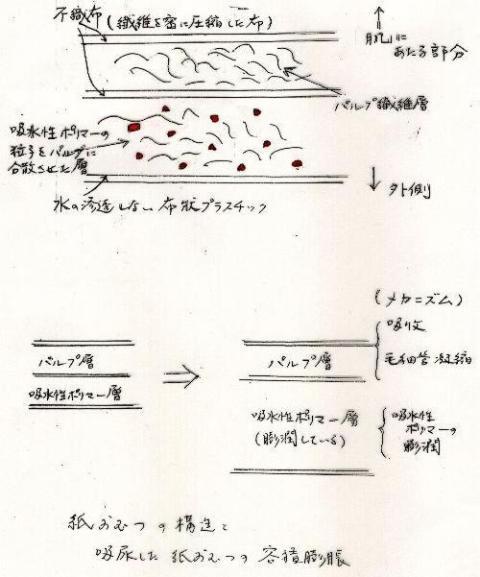 不織布(繊維を密に圧縮した布)
肌に
あたる部分
パルプ繊維層
吸水性ポリマーの
粒子をパルプに
分散させた層
外側
水の浸透しない布状プラスチック
(メカニズム)
パルプ層
吸水性ポリマー層
パルプ層
吸収
毛細管凝縮
吸水性ポリマー層
(膨潤している)
吸水性
ポリマーの
膨潤
紙おむつの構造と
吸尿した紙おむつの容積膨脹